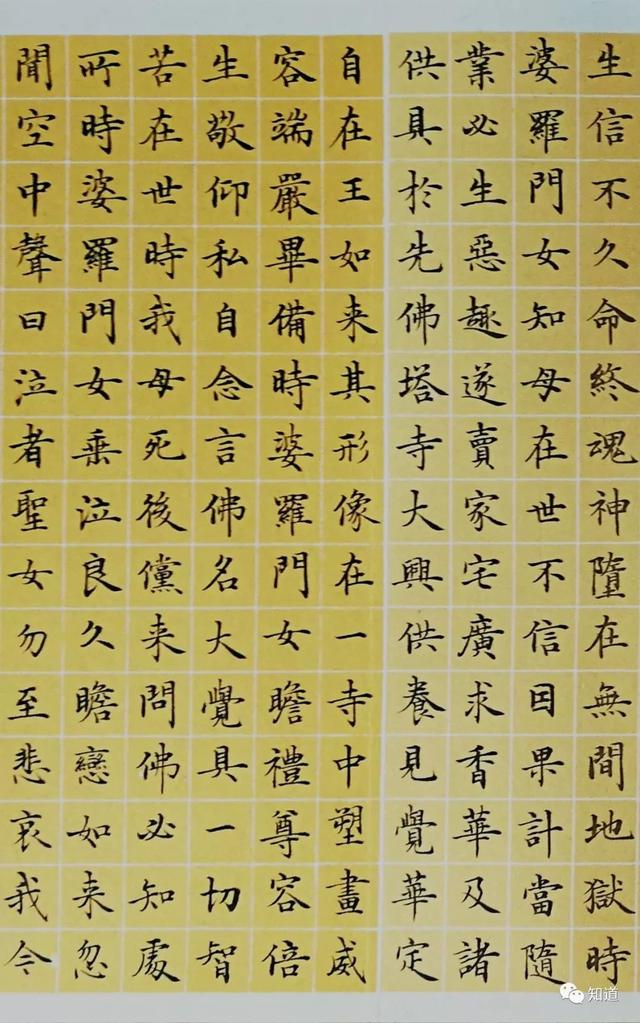 生信不久命終魂神墮在無間地獄時
婆羅門女知母在世不信因果計當隨
業必生惡趣遂賣家宅廣求香華及諸
供具於先佛塔寺大興供養見覺華定
自在王如来其形像在一寺中塑畫威
容端嚴畢備時婆羅門女瞻禮尊容倍
生敬仰私自念言佛名大覺具一切智
苦在世時我母死後儻来問佛必知處
所時婆羅門女垂泣良久瞻戀如来忽
聞空中聲曰泣者聖女勿至悲哀我今
知道